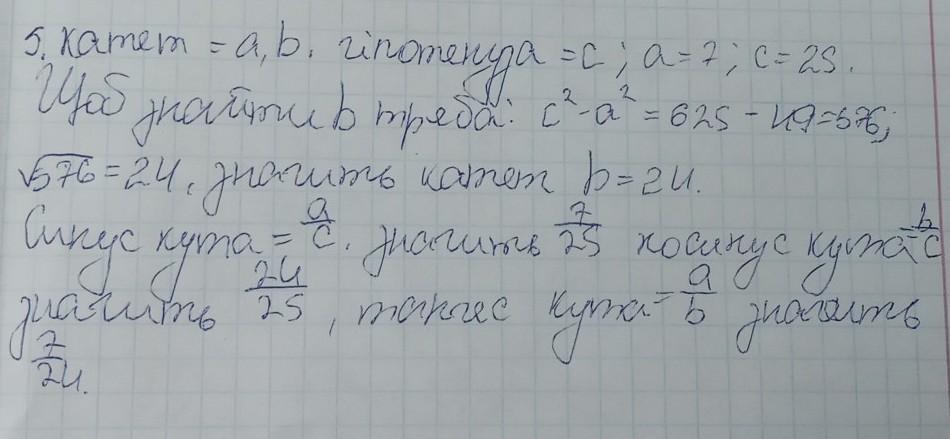 5. катет = a, b. гіпотенуза = c; a = 7; c = 25.
Щоб знайти b треба: c² - a² = 625 - 49 = 576;
√576 = 24, значить катет b = 24.
Синус кута = a/c. значить 7/25 косинус кута = b/c
значить 24/25, тангес кута = a/b значить
7/24.